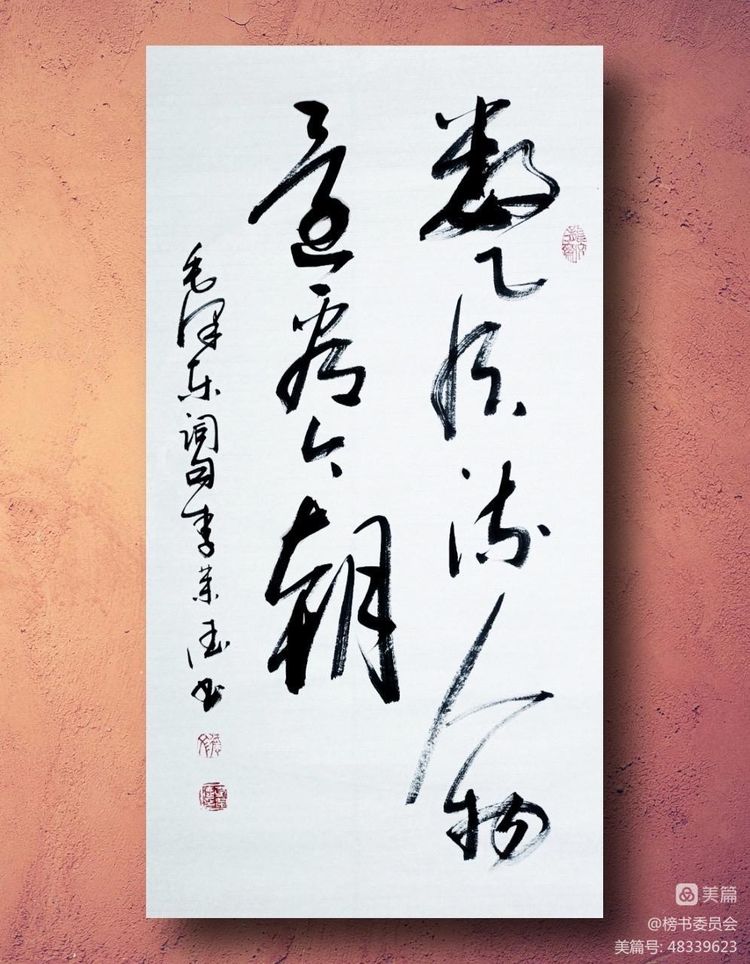 数风流人物
還看今朝
毛泽东词句李书
美篇
@榜书委员会
美篇号: 48339623